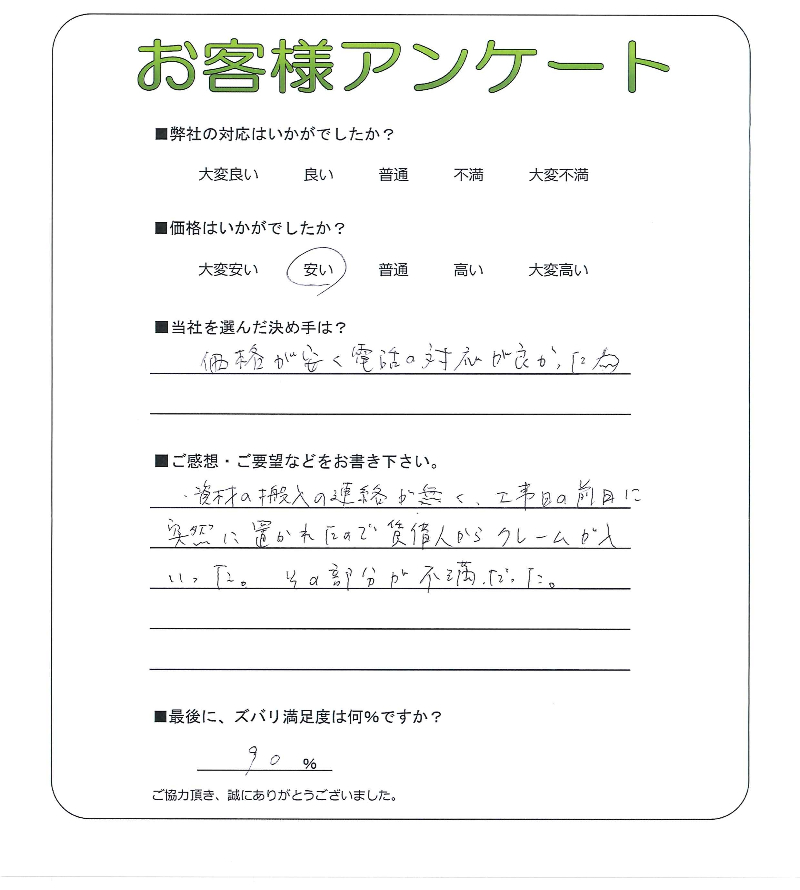 お客様アンケート
■弊社の対応はいかがでしたか？
大変良い 良い 普通 不満 大変不満
■価格はいかがでしたか？
大変安い 安い 普通 高い 大変高い
■当社を選んだ決め手は？
価格が安く電話の対応が良かった為
■ご感想・ご要望などをお書き下さい。
・資材の搬入の連絡が無く、工事日の前日に
突然に置かれたので賃借人からクレームが入
いった。その部分が不満だった。
■最後に、ズバリ満足度は何%ですか？
90 %
ご協力頂き、誠にありがとうございました。